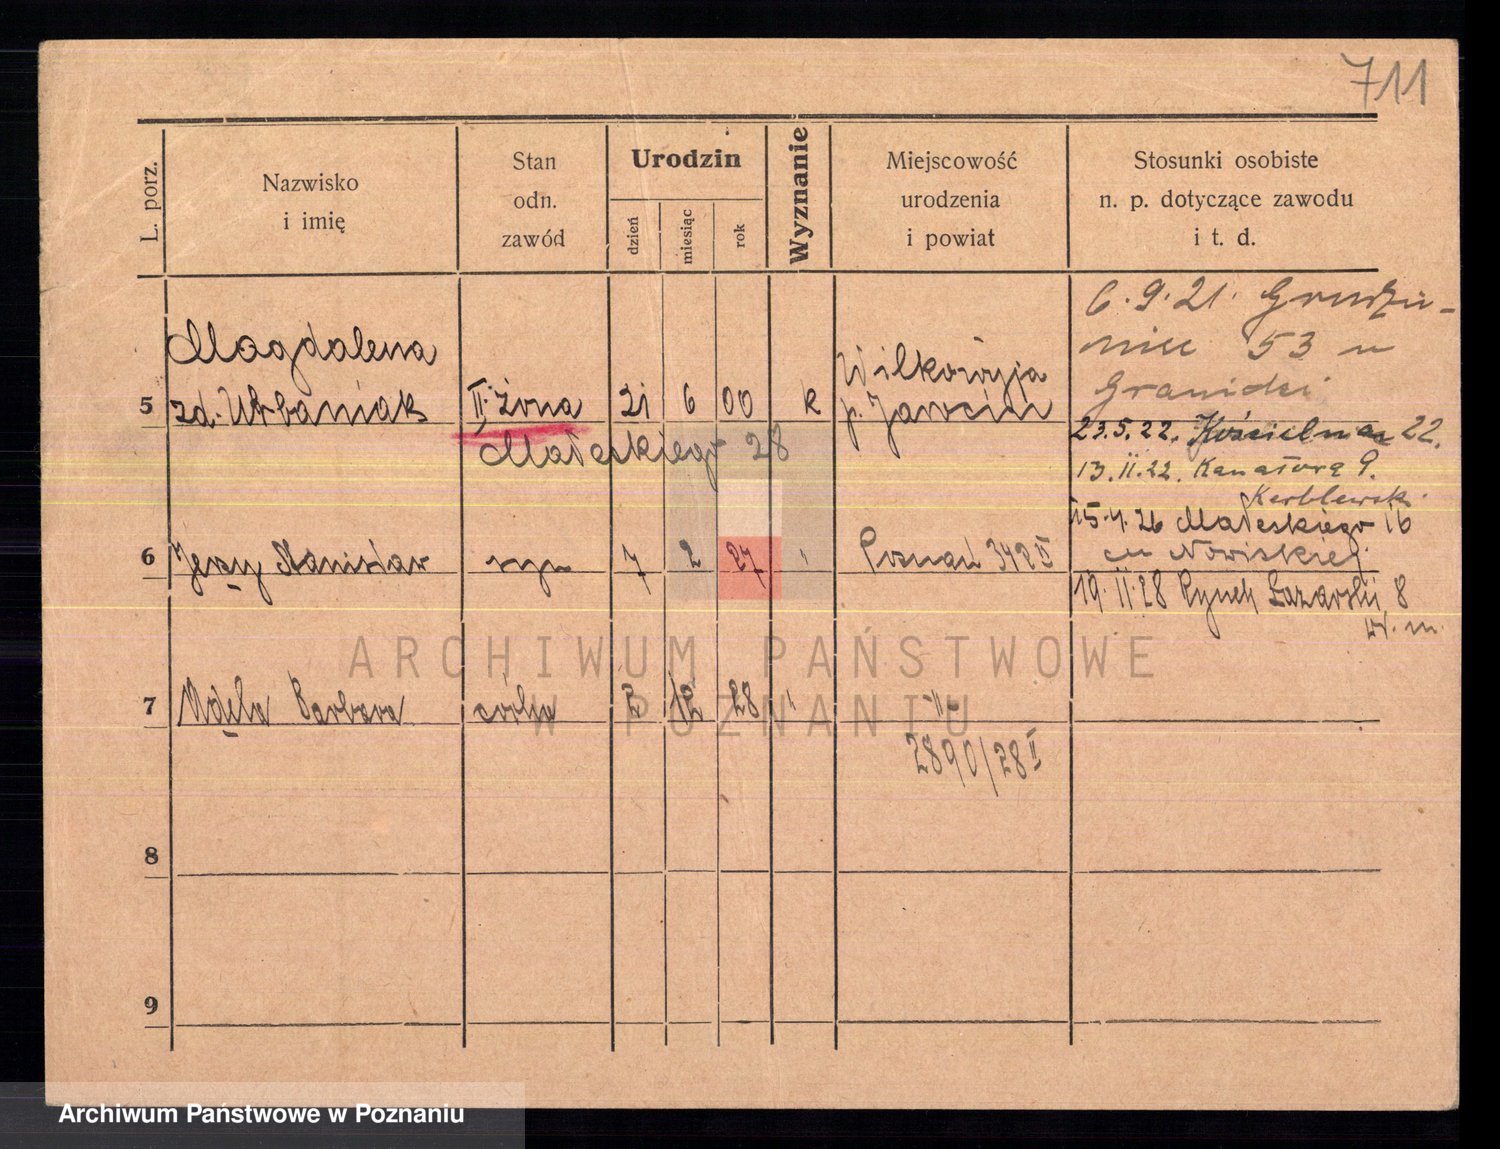 711
L. porz.
Nazwisko
i imię
Stan
odn.
zawód
Urodzin
dzień
miesiąc
rok
Wyznanie
Miejscowość
urodzenia
i powiat
Stosunki osobiste
n. p. dotyczące zawodu
i t. d.
6.9.21. Grudzie-
niec 53 u
5 Magdalena
zd. Urbaniak
II. żona 21 6 00 k
Wilkowyja
p. Jarocin
Matejskiego 28
23.5.22. Kościelna 22.
13.11.22. Kanałowa 9.
15.4.26 Matejskiego 16
u
6 Jerzy Stanisław syn 7 2 27 "
Poznań 342 II
19.11.28 Rynek Łazarski 8
wł. m.
7 Adela Barbara córka 2 12 28 "
-"-
2890/28 II
8
9
ARCHIWUM PAŃSTWOWE
W POZNANIU
Archiwum Państwowe w Poznaniu